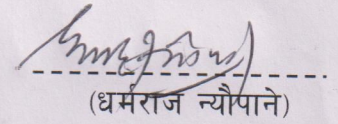 (धर्मराज न्यौपाने)